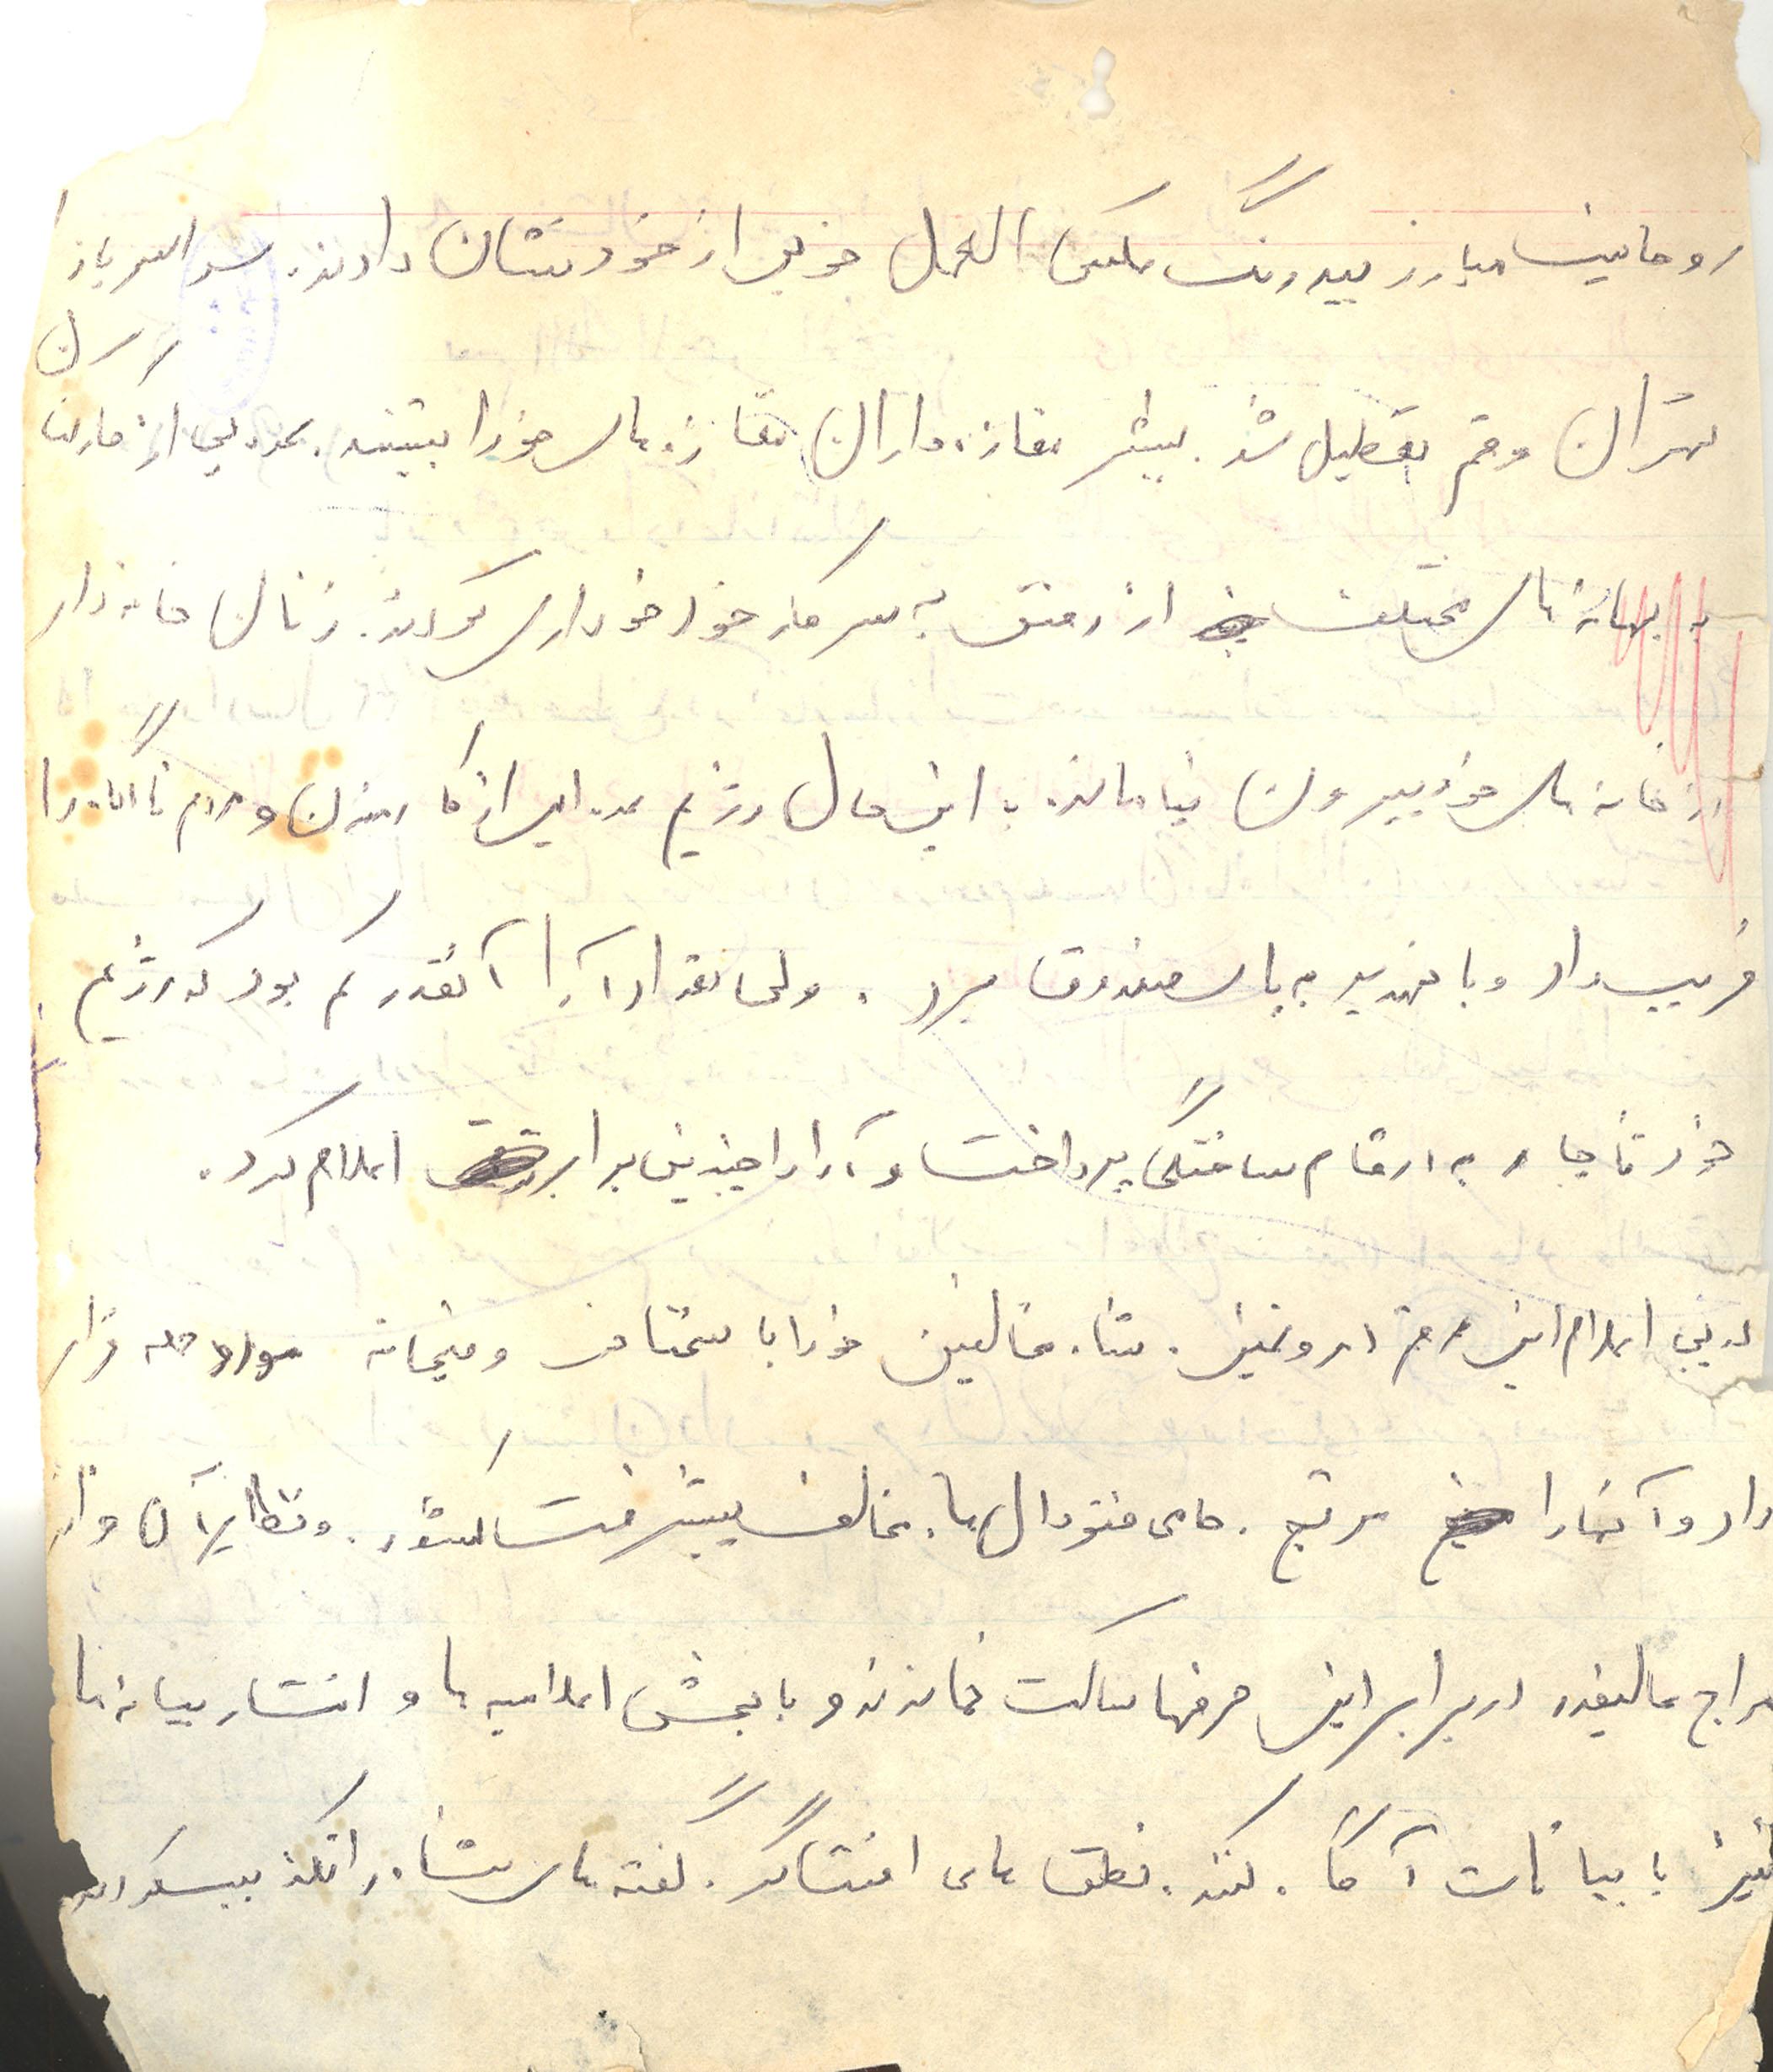 روحانیت مبارز بیدرنگ عکس العمل خوبی از خود نشان دادند. سراسر بازار
تهران و قم تعطیل شد. بیشتر مغازه داران مغازه های خود را بستند. عده ای از کارمندان
به بهانه های مختلف از رفتن به سر کار خود خودداری کردند. زنان خانه دار
از خانه های خود بیرون نیامدند. با این حال رژیم عده ای از کارمندان و مردم ناآگاه را
فریب داد و با تهدید به پای صندوق برد. ولی تعداد آرا آنقدر کم بود که رژیم
خود ناچار به ارقام ساختگی پرداخت و آرا را چندین برابر اعلام کرد.
در پی اعلام این رقم دروغین. شاه مخالفین خود را با سخنان وقیحانه مورد حمله قرار
داد و آنها را مرتجع. حامی فئودال ها. مخالف پیشرفت کشور. و نظایر آن خواند
مراجع عالیقدر در برابر این حرفها ساکت نماندند و با پخش اعلامیه ها و انتشار بیانه ها
نیز با بیانات آگاه کننده. نطق های افشاگر. گفته های شاه را تکذیب کردند